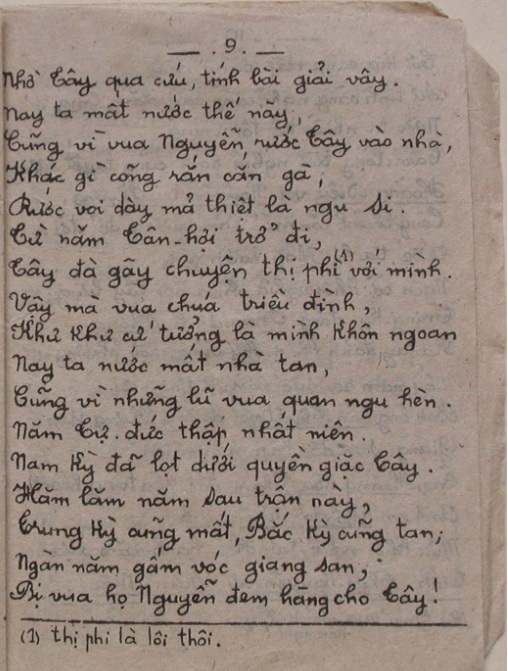 — . 9 . —
Nhờ Tây qua cứu, tính bài giải vây.
Nay ta mất nước thế nầy,
Cũng vì vua Nguyễn, rước Tây vào nhà,
Khác gì cõng rắn cắn gà,
Rước voi dày mả thiệt là ngu si.
Từ năm Tân-hợi trở đi,
Tây đà gây chuyện thị phi (1) với mình.
Vậy mà vua chúa triều đình,
Khư khư cứ tưởng là mình khôn ngoan
Nay ta nước mất nhà tan,
Cũng vì những lũ vua quan ngu hèn.
Năm Tự. đức thập nhất niên.
Nam Kỳ đã lọt dưới quyền giặc Tây.
Hăm lăm năm sau trận này,
Trung Kỳ cũng mất, Bắc Kỳ cũng tan;
Ngàn năm gấm vóc giang san,
Bị vua họ Nguyễn đem hàng cho Tây!
(1) thị phi là lôi thôi.